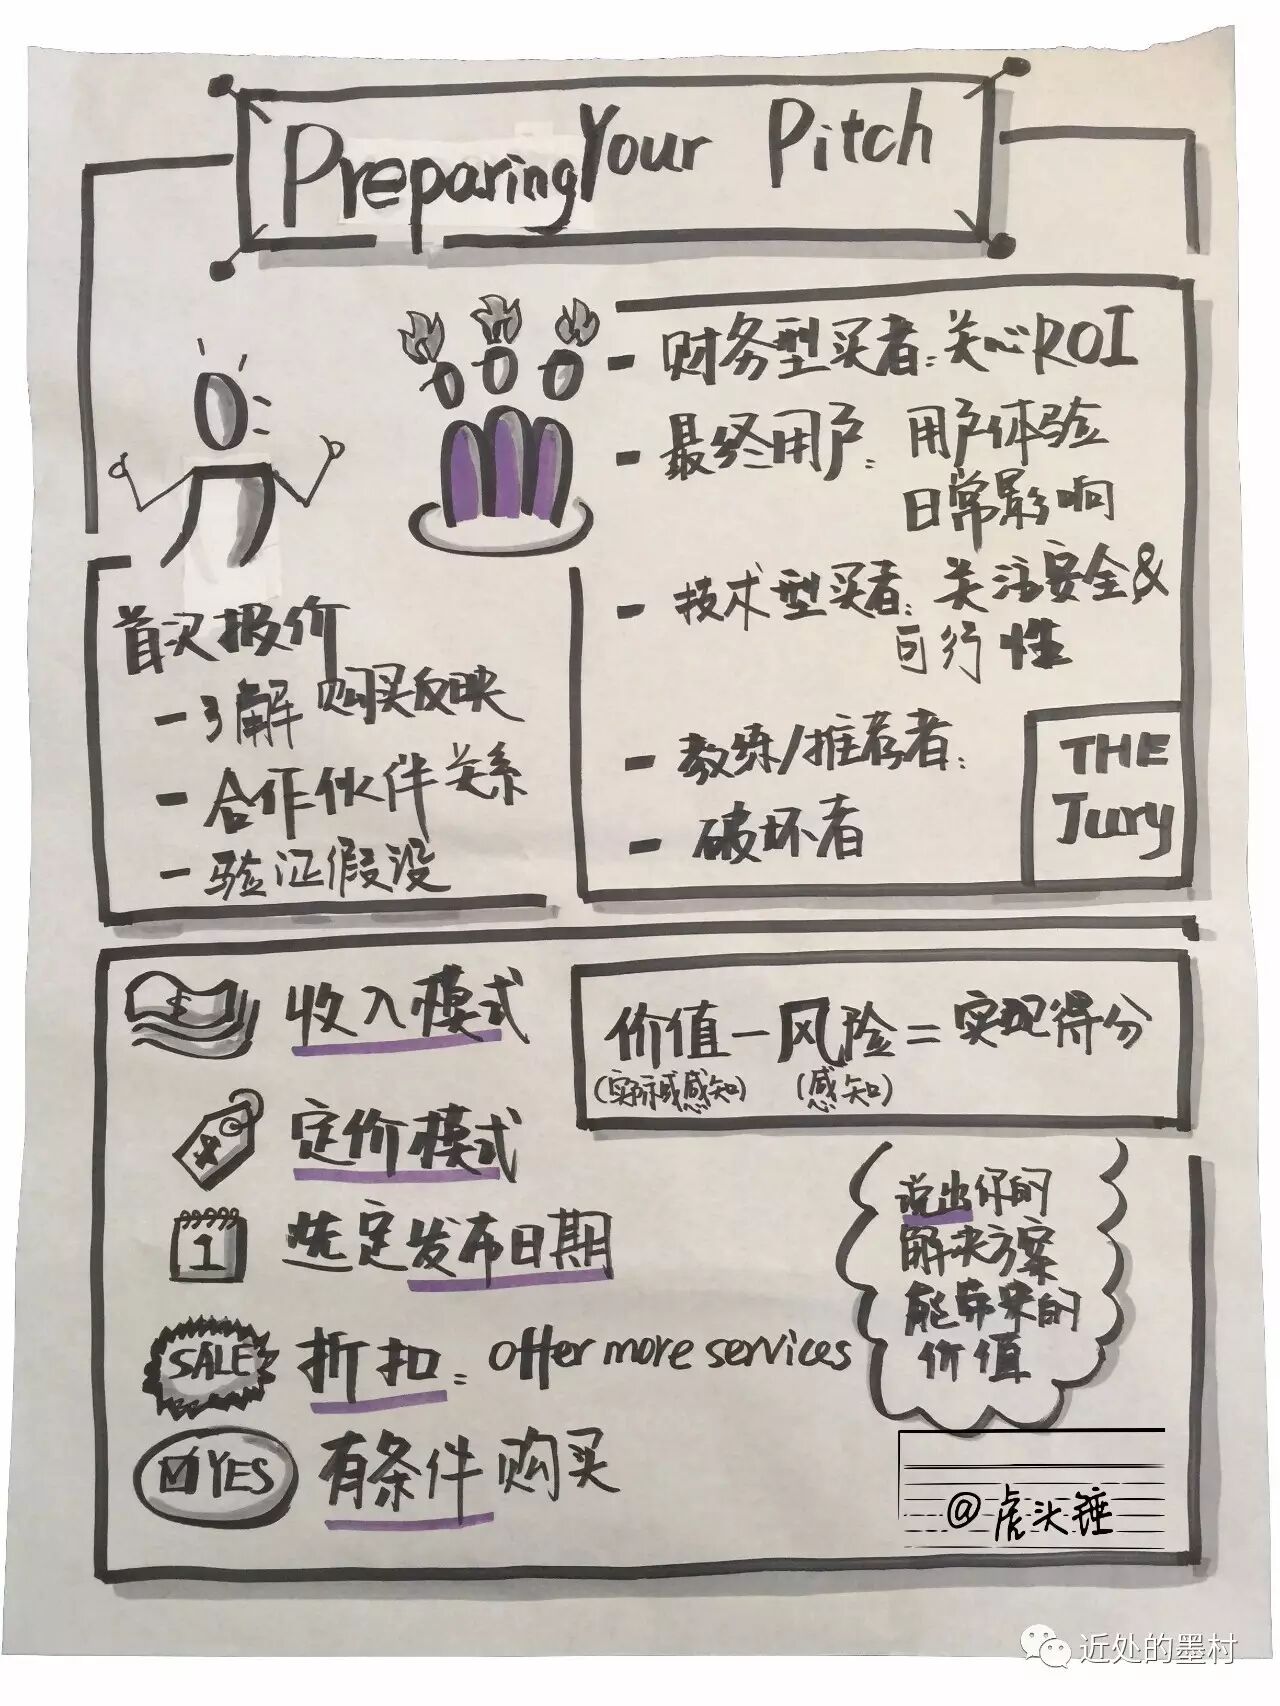 Preparing Your Pitch
- 财务型买者:关心ROI
- 最终用户:用户体验
日常影响
- 技术型买者:关注安全&
可行性
- 教练/推荐者:
- 破坏者
THE
Jury
首次报价
- 了解购买反映
- 合作伙伴关系
- 验证假设
收入模式
价值-风险=实现得分
(实际或感知) (感知)
定价模式
1
选定发布日期
SALE
折扣:offer more services
YES
有条件购买
说出你的
解决方案
能带来的
价值
@虎头锤
近处的墨村